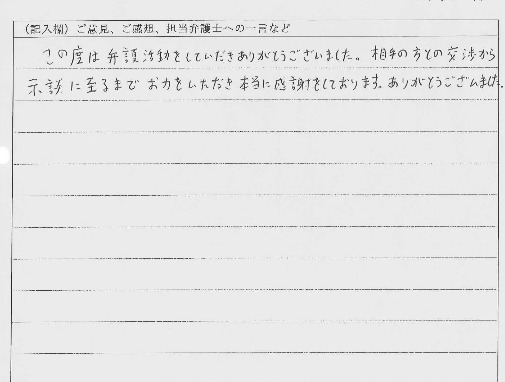 （記入欄）ご意見、ご感想、担当弁護士への一言など
この度は弁護活動をしていだきありがとうございました。相手の方との交渉から
示談に至るまでお力をいただき本当に感謝をしております。ありがとうございました。